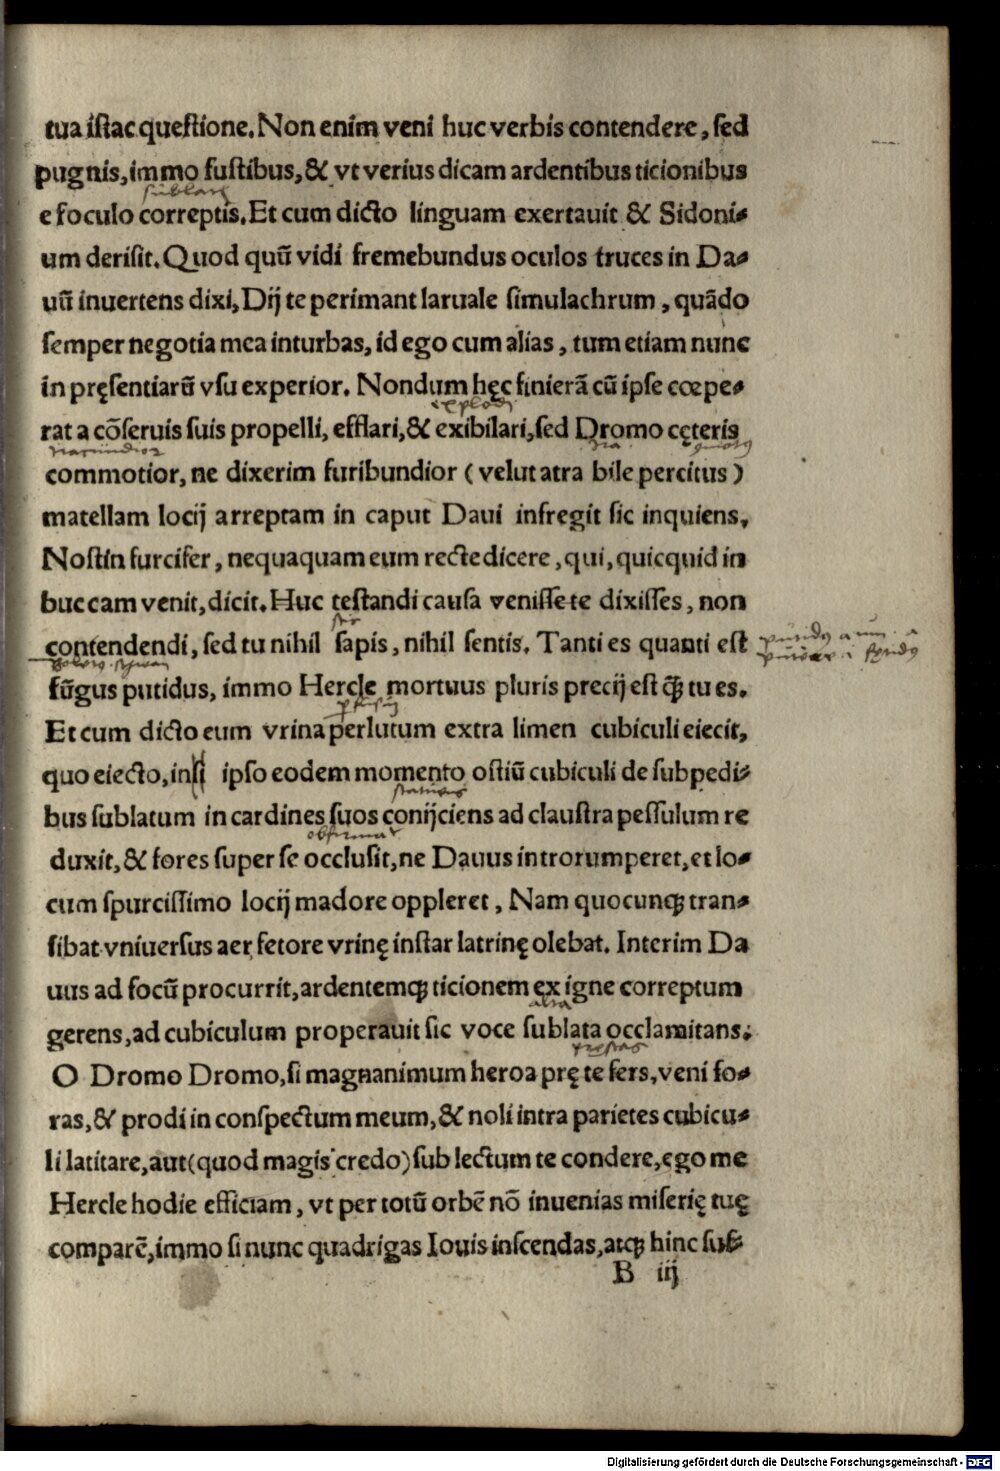 tua istac questione. Non enim veni huc verbis contendere, sed
pugnis, immo fustibus, & vt verius dicam ardentibus ticionibus
e foculo correptis. Et cum dicto linguam exertauit & Sidoni⸗
um derisit. Quod quū vidi fremebundus oculos truces in Da⸗
uū inuertens dixi, Dij te perimant laruale simulachrum, quādo
semper negotia mea inturbas, id ego cum alias, tum etiam nunc
in pręsentiarū vsu experior. Nondum hęc finierā cū ipse cœpe⸗
rat a cōseruis suis propelli, efflari, & exibilari, sed Dromo cęteris
commotior, ne dixerim furibundior (velut atra bile percitus)
matellam locij arreptam in caput Daui infregit sic inquiens,
Nostin furcifer, nequaquam eum recte dicere, qui, quicquid in
buccam venit, dicit. Huc testandi causa venisse te dixisses, non
contendendi, sed tu nihil sapis, nihil sentis. Tanti es quanti est
fūgus putidus, immo Hercle mortuus pluris precij est q̄ꝫ tu es.
Et cum dicto eum vrina perlutum extra limen cubiculi eiecit,
quo eiecto, ipso eodem momento ostiū cubiculi de sub pedi⸗
bus sublatum in cardines suos conijciens ad claustra pessulum re
duxit, & fores super se occlusit, ne Dauus introrumperet, et lo⸗
cum spurcissimo locij madore oppleret, Nam quocunqꝫ tran⸗
sibat vniuersus aer fetore vrinę instar latrinę olebat. Interim Da
uus ad focū procurrit, ardentemqꝫ ticionem ex igne correptum
gerens, ad cubiculum properauit sic voce sublata occlamitans.
O Dromo Dromo, si magnanimum heroa prę te fers, veni fo⸗
ras, & prodi in conspectum meum, & noli intra parietes cubicu⸗
li latitare, aut (quod magis credo) sub lectum te condere, ego me
Hercle hodie efficiam, vt per totū orbē nō inuenias miserię tuę
comparē, immo si nunc quadrigas Iouis inscendas, atqꝫ hinc suf⸗
B iij
Digitalisierung gefördert durch die Deutsche Forschungsgemeinschaft - DFG